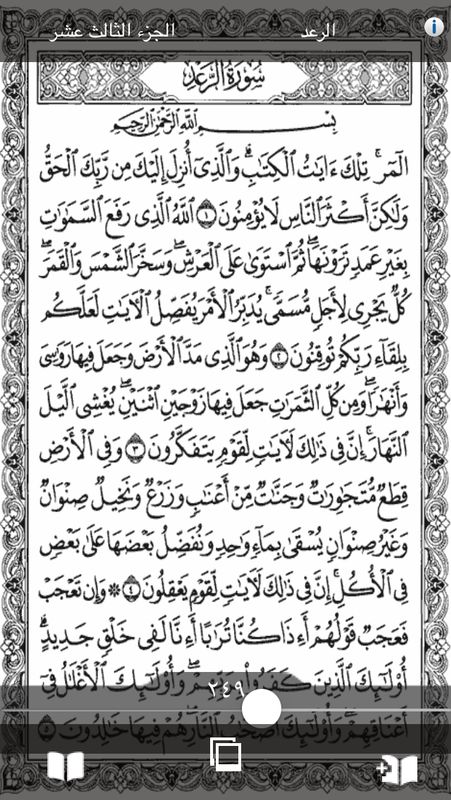 الرعد الجزء الثالث عشر
سُورَةُ الرَّعْدِ
بِسْمِ ٱللَّهِ ٱلرَّحْمَٰنِ ٱلرَّحِيمِ
الٓمٓر ۚ تِلْكَ ءَايَٰتُ ٱلْكِتَٰبِ ۗ وَٱلَّذِىٓ أُنزِلَ إِلَيْكَ مِن رَّبِّكَ ٱلْحَقُّ
وَلَٰكِنَّ أَكْثَرَ ٱلنَّاسِ لَا يُؤْمِنُونَ ١ ٱللَّهُ ٱلَّذِى رَفَعَ ٱلسَّمَٰوَٰتِ
بِغَيْرِ عَمَدٍ تَرَوْنَهَا ۖ ثُمَّ ٱسْتَوَىٰ عَلَى ٱلْعَرْشِ ۖ وَسَخَّرَ ٱلشَّمْسَ وَٱلْقَمَرَ ۖ
كُلٌّ يَجْرِى لِأَجَلٍ مُّسَمًّى ۚ يُدَبِّرُ ٱلْأَمْرَ يُفَصِّلُ ٱلْءَايَٰتِ لَعَلَّكُم
بِلِقَآءِ رَبِّكُمْ تُوقِنُونَ ٢ وَهُوَ ٱلَّذِى مَدَّ ٱلْأَرْضَ وَجَعَلَ فِيهَا رَوَٰسِىَ
وَأَنْهَٰرًا ۖ وَمِن كُلِّ ٱلثَّمَرَٰتِ جَعَلَ فِيهَا زَوْجَيْنِ ٱثْنَيْنِ ۖ يُغْشِى ٱلَّيْلَ
ٱلنَّهَارَ ۚ إِنَّ فِى ذَٰلِكَ لَءَايَٰتٍ لِّقَوْمٍ يَتَفَكَّرُونَ ٣ وَفِى ٱلْأَرْضِ
قِطَعٌ مُّتَجَٰوِرَٰتٌ وَجَنَّٰتٌ مِّنْ أَعْنَٰبٍ وَزَرْعٌ وَنَخِيلٌ صِنْوَانٌ
وَغَيْرُ صِنْوَانٍ يُسْقَىٰ بِمَآءٍ وَٰحِدٍ وَنُفَضِّلُ بَعْضَهَا عَلَىٰ بَعْضٍ
فِى ٱلْأُكُلِ ۚ إِنَّ فِى ذَٰلِكَ لَءَايَٰتٍ لِّقَوْمٍ يَعْقِلُونَ ٤ ۞ وَإِن تَعْجَبْ
فَعَجَبٌ قَوْلُهُمْ أَءِذَا كُنَّا تُرَٰبًا أَءِنَّا لَفِى خَلْقٍ جَدِيدٍ ۗ
أُو۟لَٰٓئِكَ ٱلَّذِينَ كَفَرُوا۟ ۖ وَأُو۟لَٰٓئِكَ ٱلْأَغْلَٰلُ فِىٓ
٢٤٩
أَعْنَاقِهِمْ ۖ وَأُو۟لَٰٓئِكَ أَصْحَٰبُ ٱلنَّارِ ۖ هُمْ فِيهَا خَٰلِدُونَ ٥